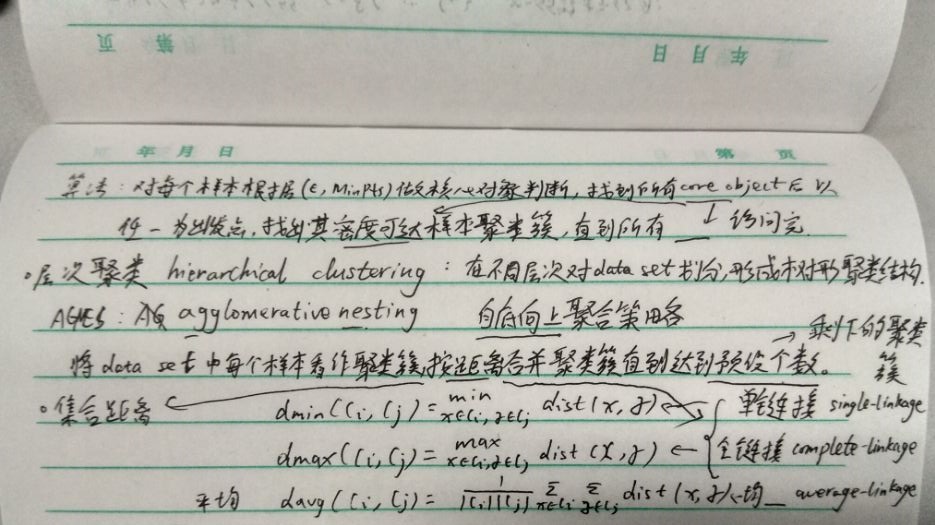 第 页
年 月 日
年 月 日 第 页
算法：对每个样本根据(ε, MinPts)做核心对象判断，找到所有core object后 以
任一为出发点，找出其密度可达样本聚类簇，直到所有 __ 访问完.
•层次聚类 hierarchical clustering：在不同层次对data set划分，形成树形聚类结构.
AGNES： agglomerative nesting 自底向上聚合策略
→ 剩下的聚类簇
将data set中每个样本看作聚类簇，按距离合并聚类簇直到达到预设个数。
•集合距离 dmin(Ci, Cj) = min x∈Ci, z∈Cj dist(x, z) ← 单链接 single-linkage
dmax(Ci, Cj) = max x∈Ci, z∈Cj dist(x, z) ← 全链接 complete-linkage
平均 davg(Ci, Cj) = 1/|Ci||Cj| Σ x∈Ci Σ z∈Cj dist(x, z) ← 均__ average-linkage